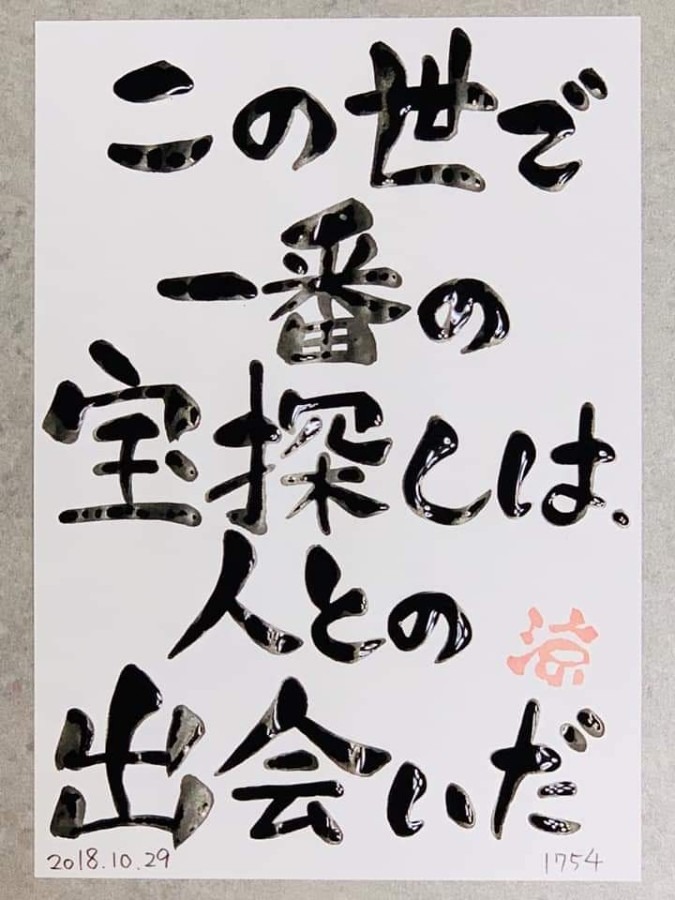 この世で
一番の
宝探しは、
人との
涼
出会いだ
2018.10.29
1754